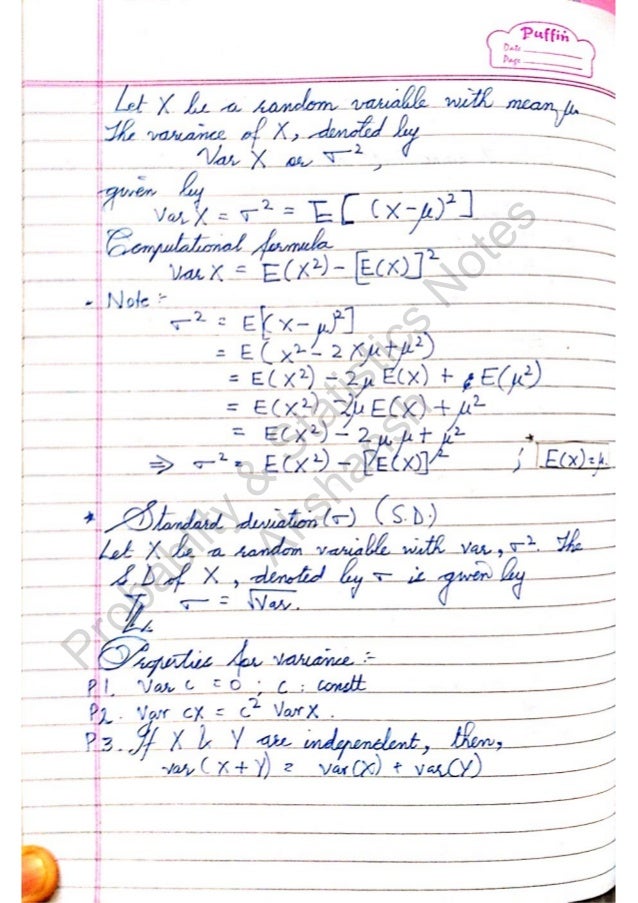 Puffin
Date
Page
Let X be a random variable with mean, μ.
The variance of X, denoted by
Var X or σ²,
given by
Var X = σ² = E[(X-μ)²]
Computational formula
Var X = E(X²) - [E(X)]²
- Note :-
σ² = E[(X-μ)²]
= E(X² - 2Xμ + μ²)
= E(X²) - 2μ E(X) + E(μ²)
= E(X²) - 2μ E(X) + μ²
= E(X²) - 2μ μ + μ²
⇒ σ² = E(X²) - [E(X)]² ; E(X) = μ
* Standard deviation (σ) (S.D.)
Let X be a random variable with var, σ². The
S D of X, denoted by σ is given by
σ = √Var.
Properties for variance :-
P1. Var c = 0 ; c : constt
P2. Var cX = c² Var X.
P3. If X & Y are independent, then,
var(X+Y) = var(X) + var(Y)
Probability & Statistics Notes
Akshansh